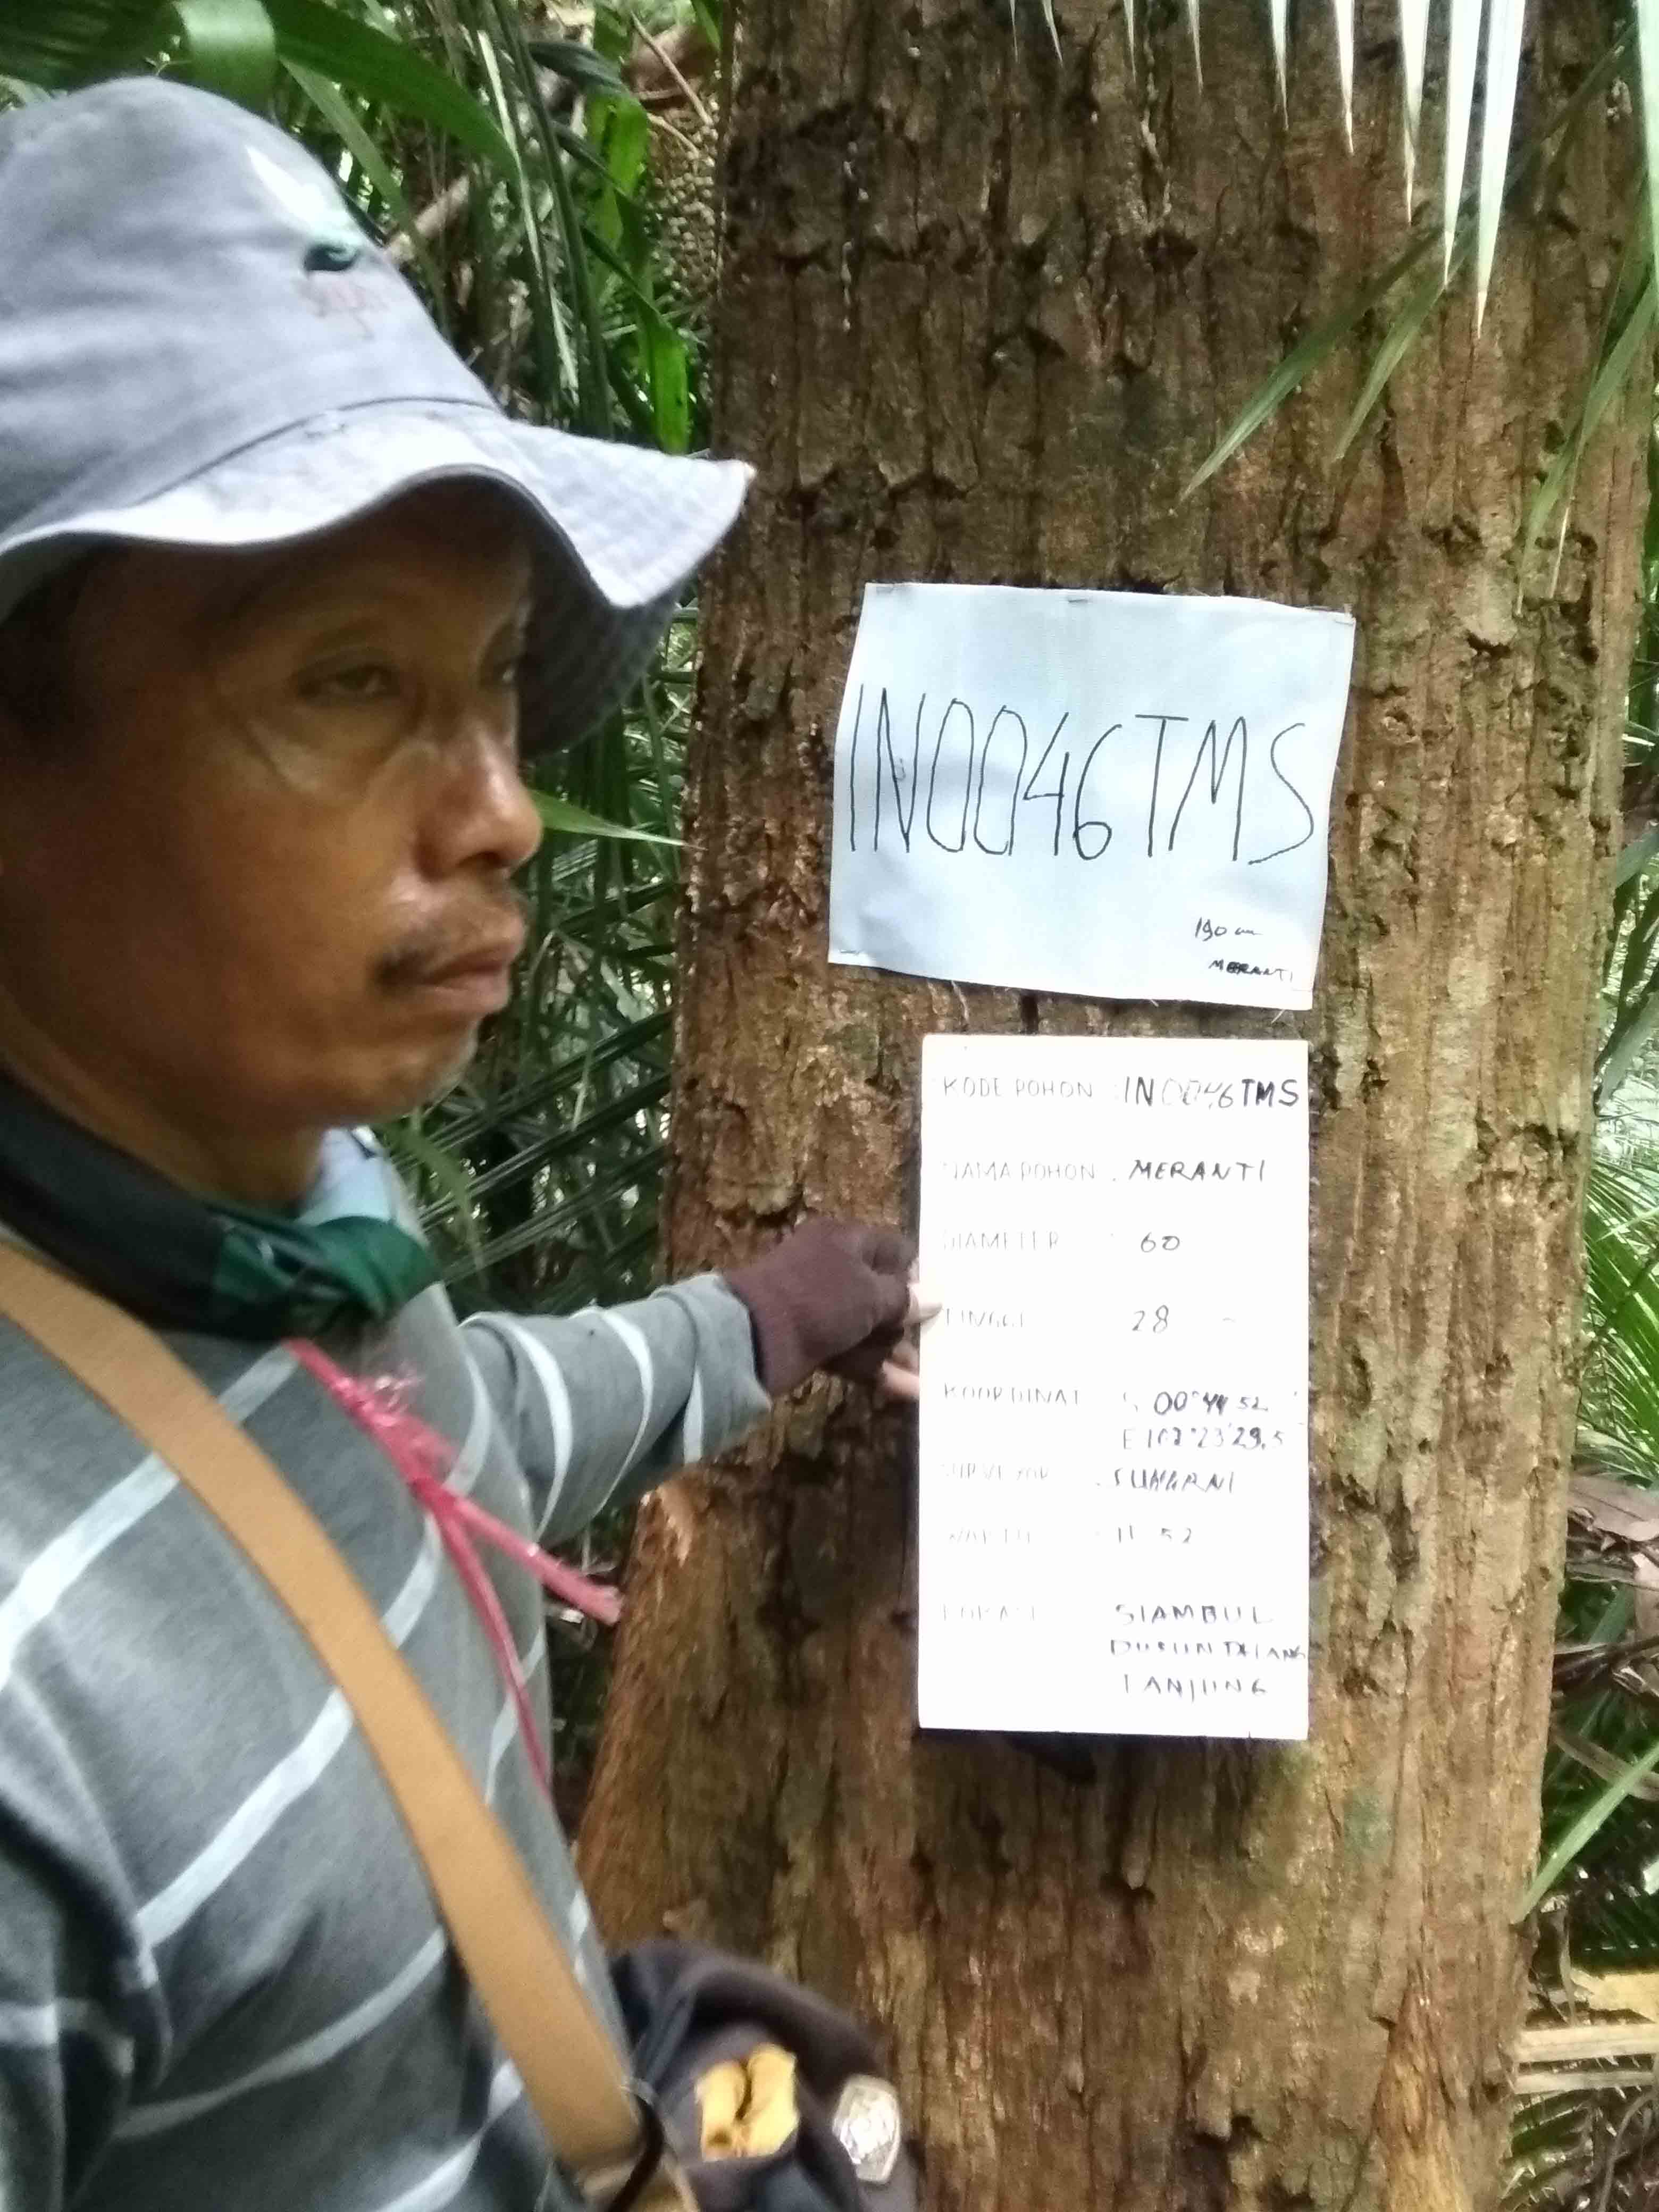 IN0046TMS
190 cm
MERANTI
KODE POHON : IN0046TMS
NAMA POHON . MERANTI
DIAMETER : 60
TINGGI 28
KOORDINAT S 00°44'52
E102°23'29.5
SURVEYOR . SUHARNI
WAKTU : 11 52
LOKASI SIAMBUL
DUSUN TALANG
TANJUNG